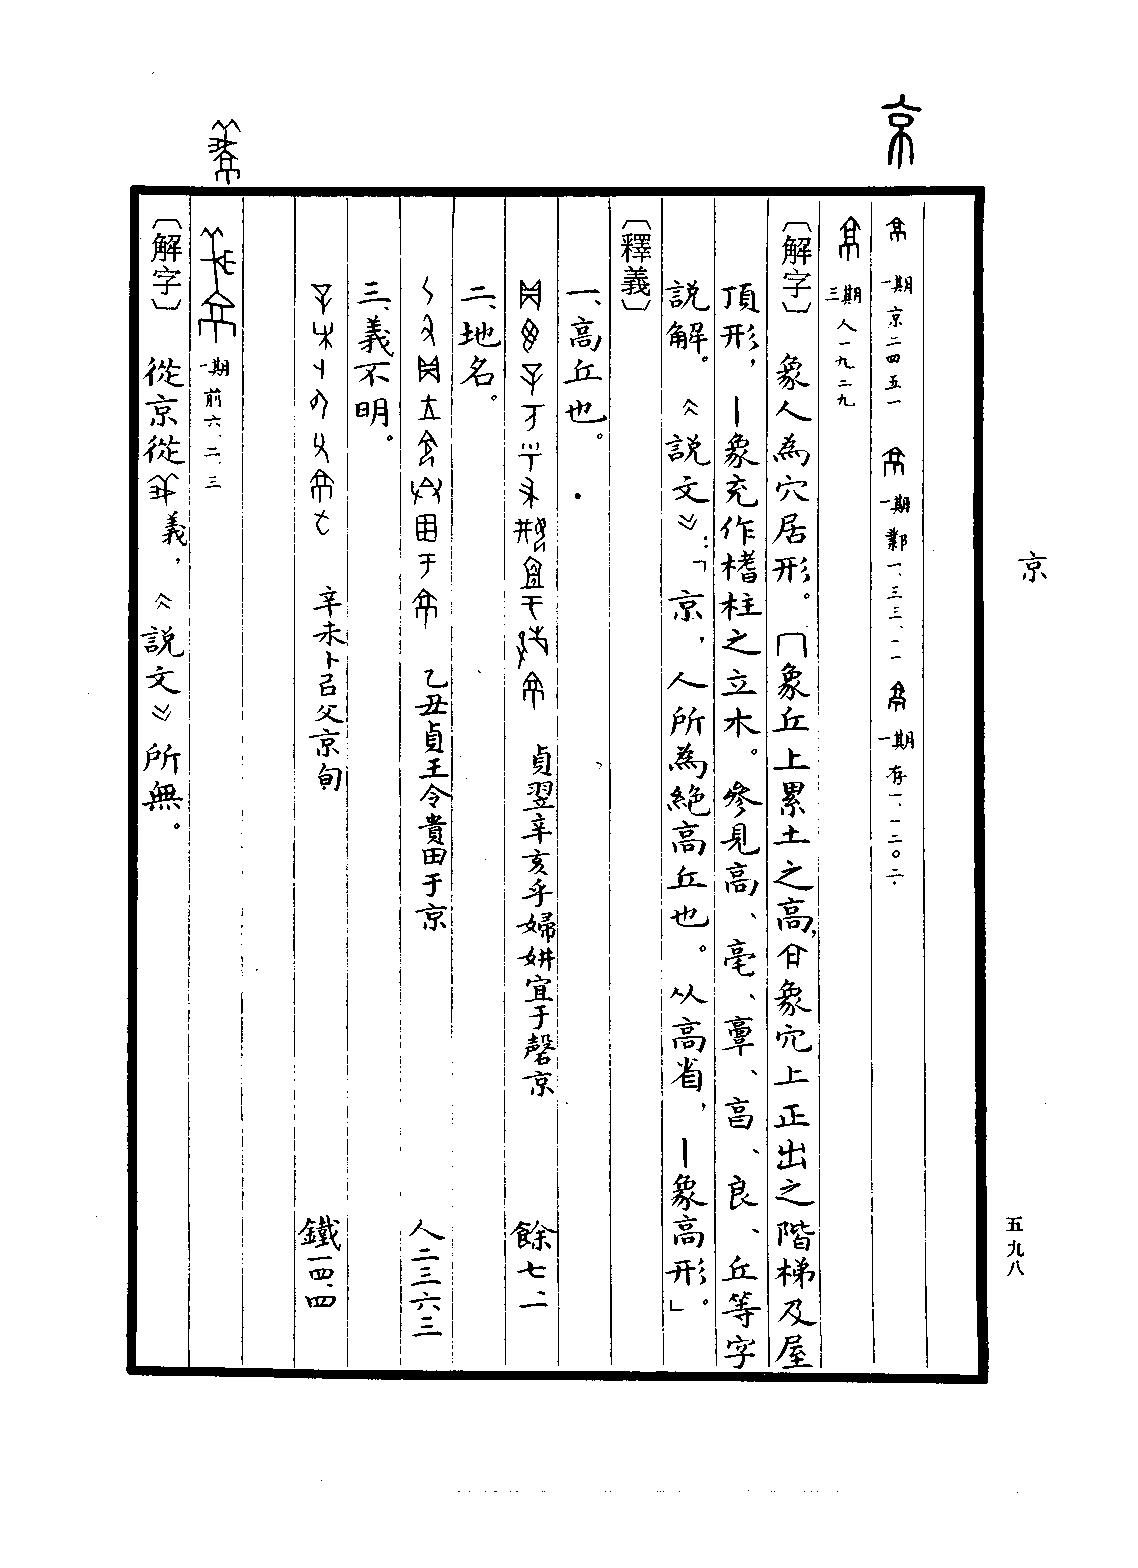 京
一期 京二四五一 一期 鄴一·三三·一一 一期 存一·一二〇二
三期 人一九二九
〔解字〕 象人為穴居形。冂象丘上累土之高,㕣象穴上正出之階梯及屋
頂形,丨象充作楮柱之立木。參見高、亳、𩫖、亯、良、丘等字
說解。《說文》:「京,人所為絕高丘也。从高省,丨象高形。」
〔釋義〕
一、高丘也。
貞翌辛亥乎婦妌宜于磬京 餘七·一
二、地名。
乙丑貞王令貴田于京 人二三六三
三、義不明。
辛未卜㠯父京旬 鐵一四·四
一期 前六·二·三
〔解字〕 從京從義,《說文》所無。
京
五九八